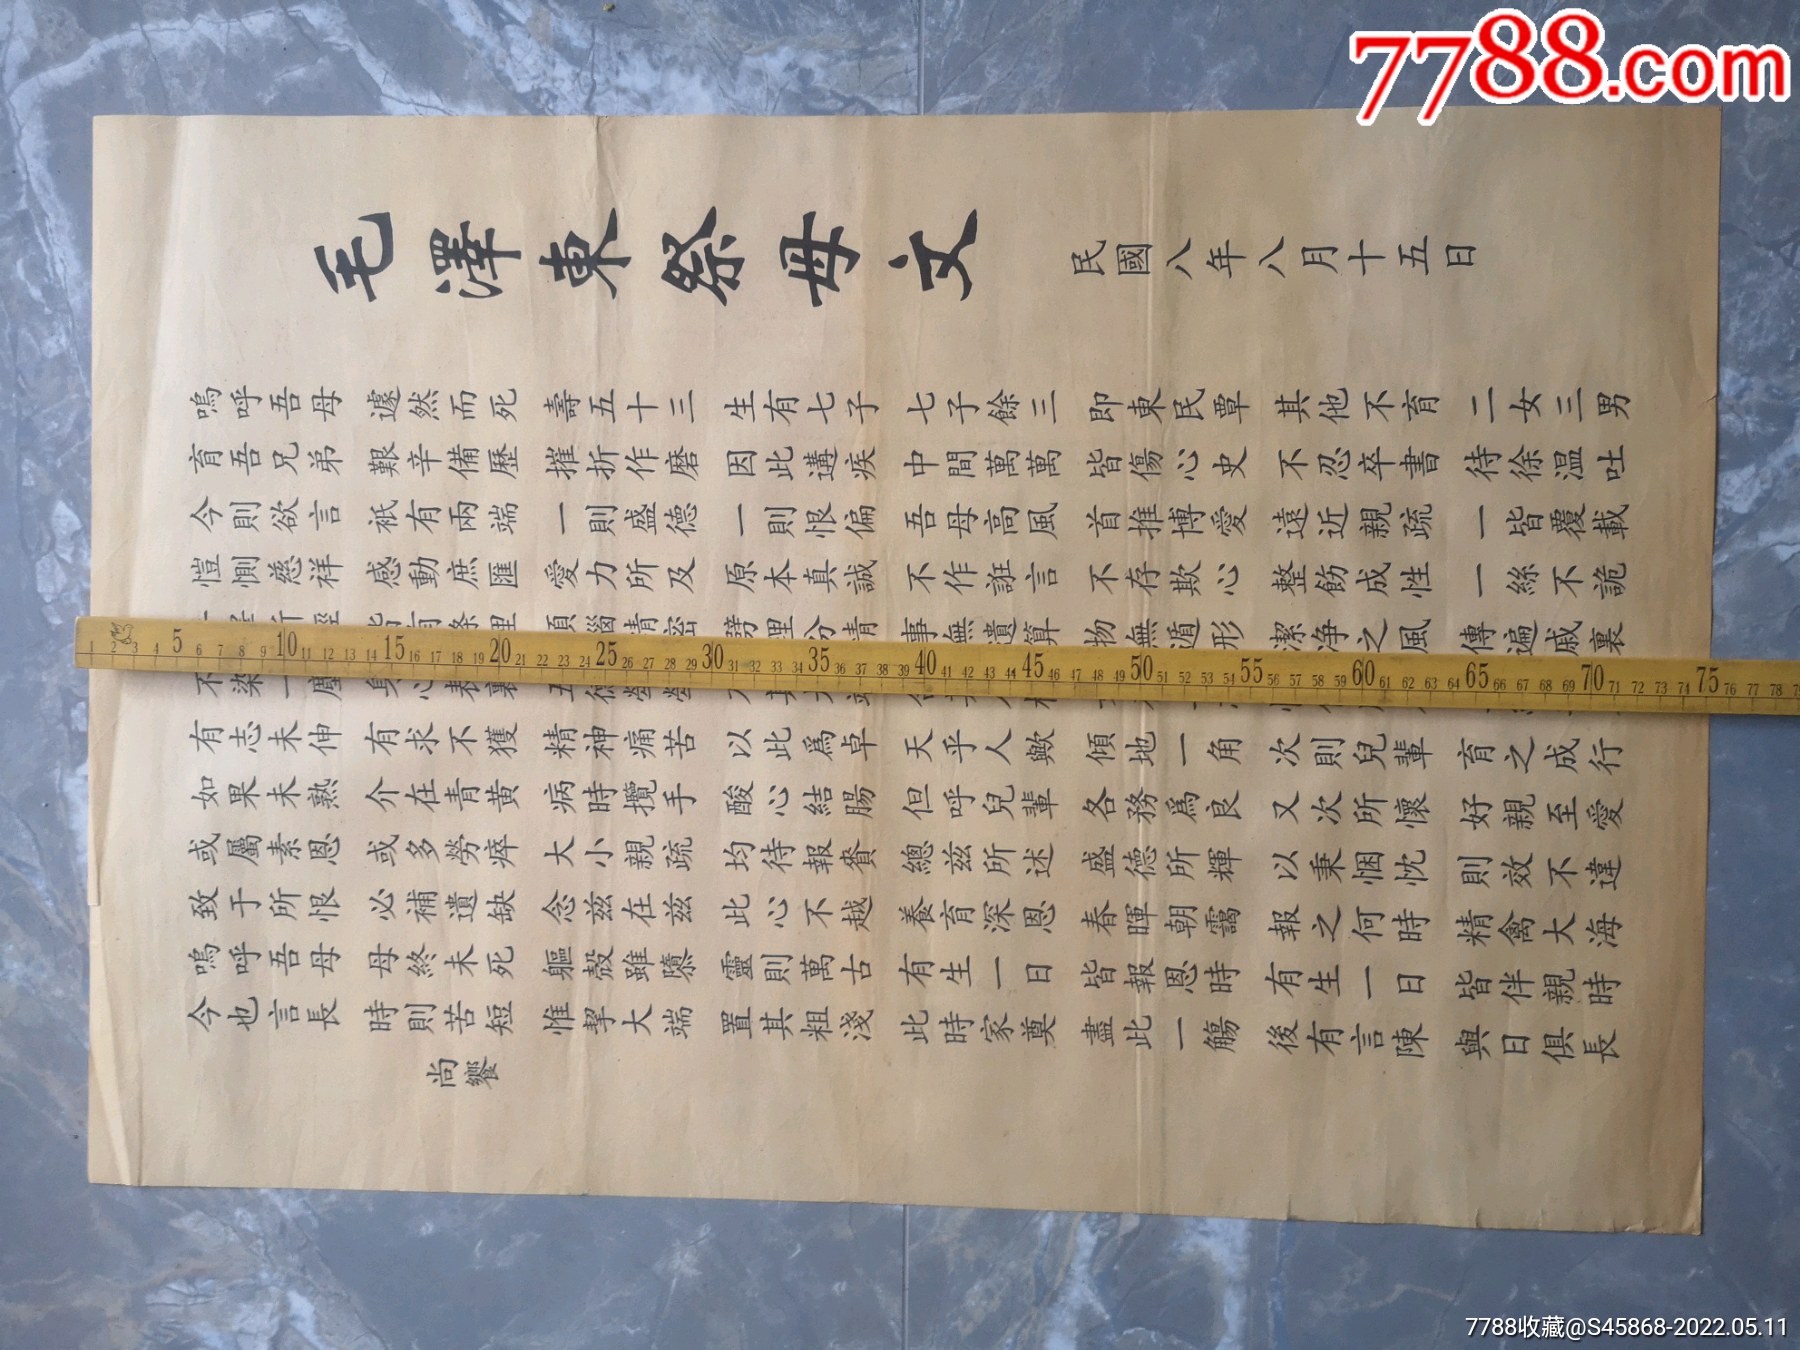 7788.com
毛澤東祭母文 民國八年八月十五日
嗚呼吾母 遽然而死 壽五十三 生有七子 七子餘三 即東民覃 其他不育 二女三男
育吾兄弟 艱辛備歷 摧折作磨 因此遘疾 中間萬萬 皆傷心史 不忍卒書 待徐温吐
今則欲言 衹有兩端 一則盛德 一則恨偏 吾母高風 首推博愛 遠近親疏 一皆覆載
愷惻慈祥 感動庶匯 愛力所及 原本真誠 不作誑言 不存欺心 整飭成性 一絲不詭
劈理分情 事無遺算 物無遁形 潔净之風 傳遍戚裏
不染一塵
有志未伸 有求不獲 精神痛苦 以此爲卓 天乎人歟 傾地一角 次則兒輩 育之成行
如果未熟 介在青黄 病時攬手 酸心結腸 但呼兒輩 各務爲良 又次所懷 好親至愛
或屬素恩 或多勞瘁 大小親疏 均待報賚 總兹所述 盛德所輝 以秉悃忱 則效不違
致于所恨 必補遺缺 念兹在兹 此心不越 養育深恩 春暉朝靄 報之何時 精禽大海
嗚呼吾母 母終未死 軀殼雖隳 靈則萬古 有生一日 皆報恩時 有生一日 皆伴親時
今也言長 時則苦短 惟挈大端 置其粗淺 此時家奠 盡此一觴 後有言陳 與日俱長
尚饗
5 10 15 20 25 30 35 40 45 50 55 60 65 70 75
7788收藏@S45868-2022.05.11